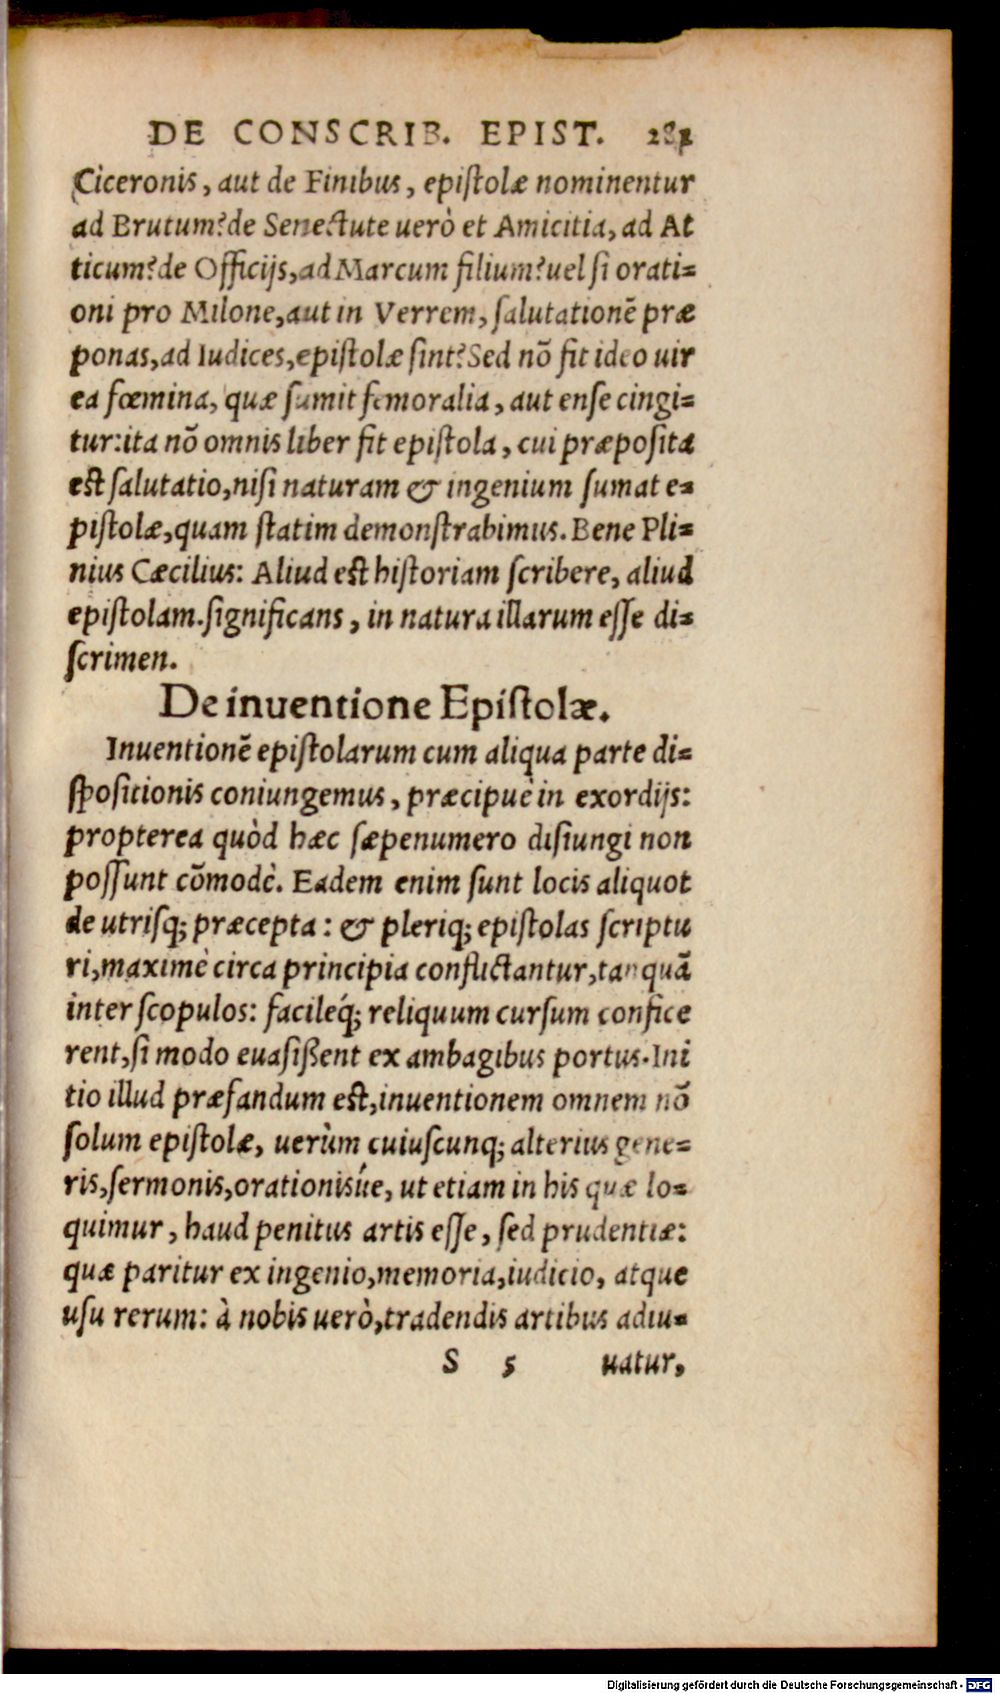 DE CONSCRIB. EPIST. 281
Ciceronis, aut de Finibus, epistolæ nominentur
ad Brutum? de Senectute uerò et Amicitia, ad At
ticum? de Officijs, ad Marcum filium? uel si orati=
oni pro Milone, aut in Verrem, salutationē præ
ponas, ad Iudices, epistolæ sint? Sed nō fit ideo uir
ea fœmina, quæ sumit femoralia, aut ense cingi=
tur: ita nō omnis liber fit epistola, cui præposita
est salutatio, nisi naturam & ingenium sumat e=
pistolæ, quam statim demonstrabimus. Bene Pli=
nius Cæcilius: Aliud est historiam scribere, aliud
epistolam. significans, in natura illarum esse di=
scrimen.
De inuentione Epistolæ.
Inuentionē epistolarum cum aliqua parte di=
spositionis coniungemus, præcipuè in exordijs:
propterea quòd hæc sæpenumero disiungi non
possunt cōmodè. Eadem enim sunt locis aliquot
de utrisq; præcepta: & pleriq; epistolas scriptu
ri, maximè circa principia conflictantur, tanquā
inter scopulos: facileq́; reliquum cursum confice
rent, si modo euasißent ex ambagibus portus. Ini
tio illud præfandum est, inuentionem omnem nō
solum epistolæ, uerùm cuiuscunq; alterius gene=
ris, sermonis, orationisúe, ut etiam in his quæ lo=
quimur, haud penitus artis esse, sed prudentiæ:
quæ paritur ex ingenio, memoria, iudicio, atque
usu rerum: à nobis uerò, tradendis artibus adiu=
S 5 uatur,
Digitalisierung gefördert durch die Deutsche Forschungsgemeinschaft - DFG